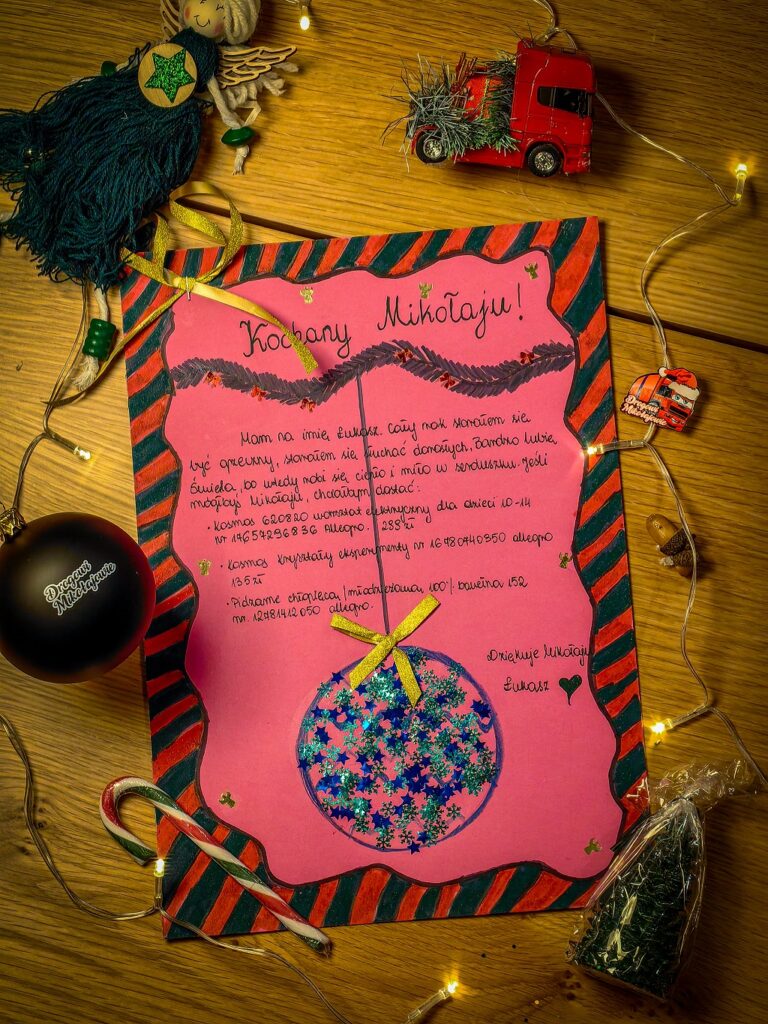 Kochany Mikołaju!
Mam na imię Łukasz. Cały rok starałem się
być grzeczny, starałem się słuchać dorosłych. Bardzo lubię
Święta, bo wtedy robi się ciepło i miło w serduszku. Jeśli
mógłbyś Mikołaju, chciałbym dostać:
• Kosmos 620820 warsztat elektryczny dla dzieci 10-14
nr 17657296836 Allegro. 288zł
• Kosmos Kryształy eksperymenty nr 16780440350 allegro
135zł
• Piżrame chłopięca/młodzieżowa, 100% bawełna 152
nr. 12781412050 allegro.
Dziękuje Mikołaju
Łukasz
Drogowi
Mikołajowie
Drogowi
Mikołajowie